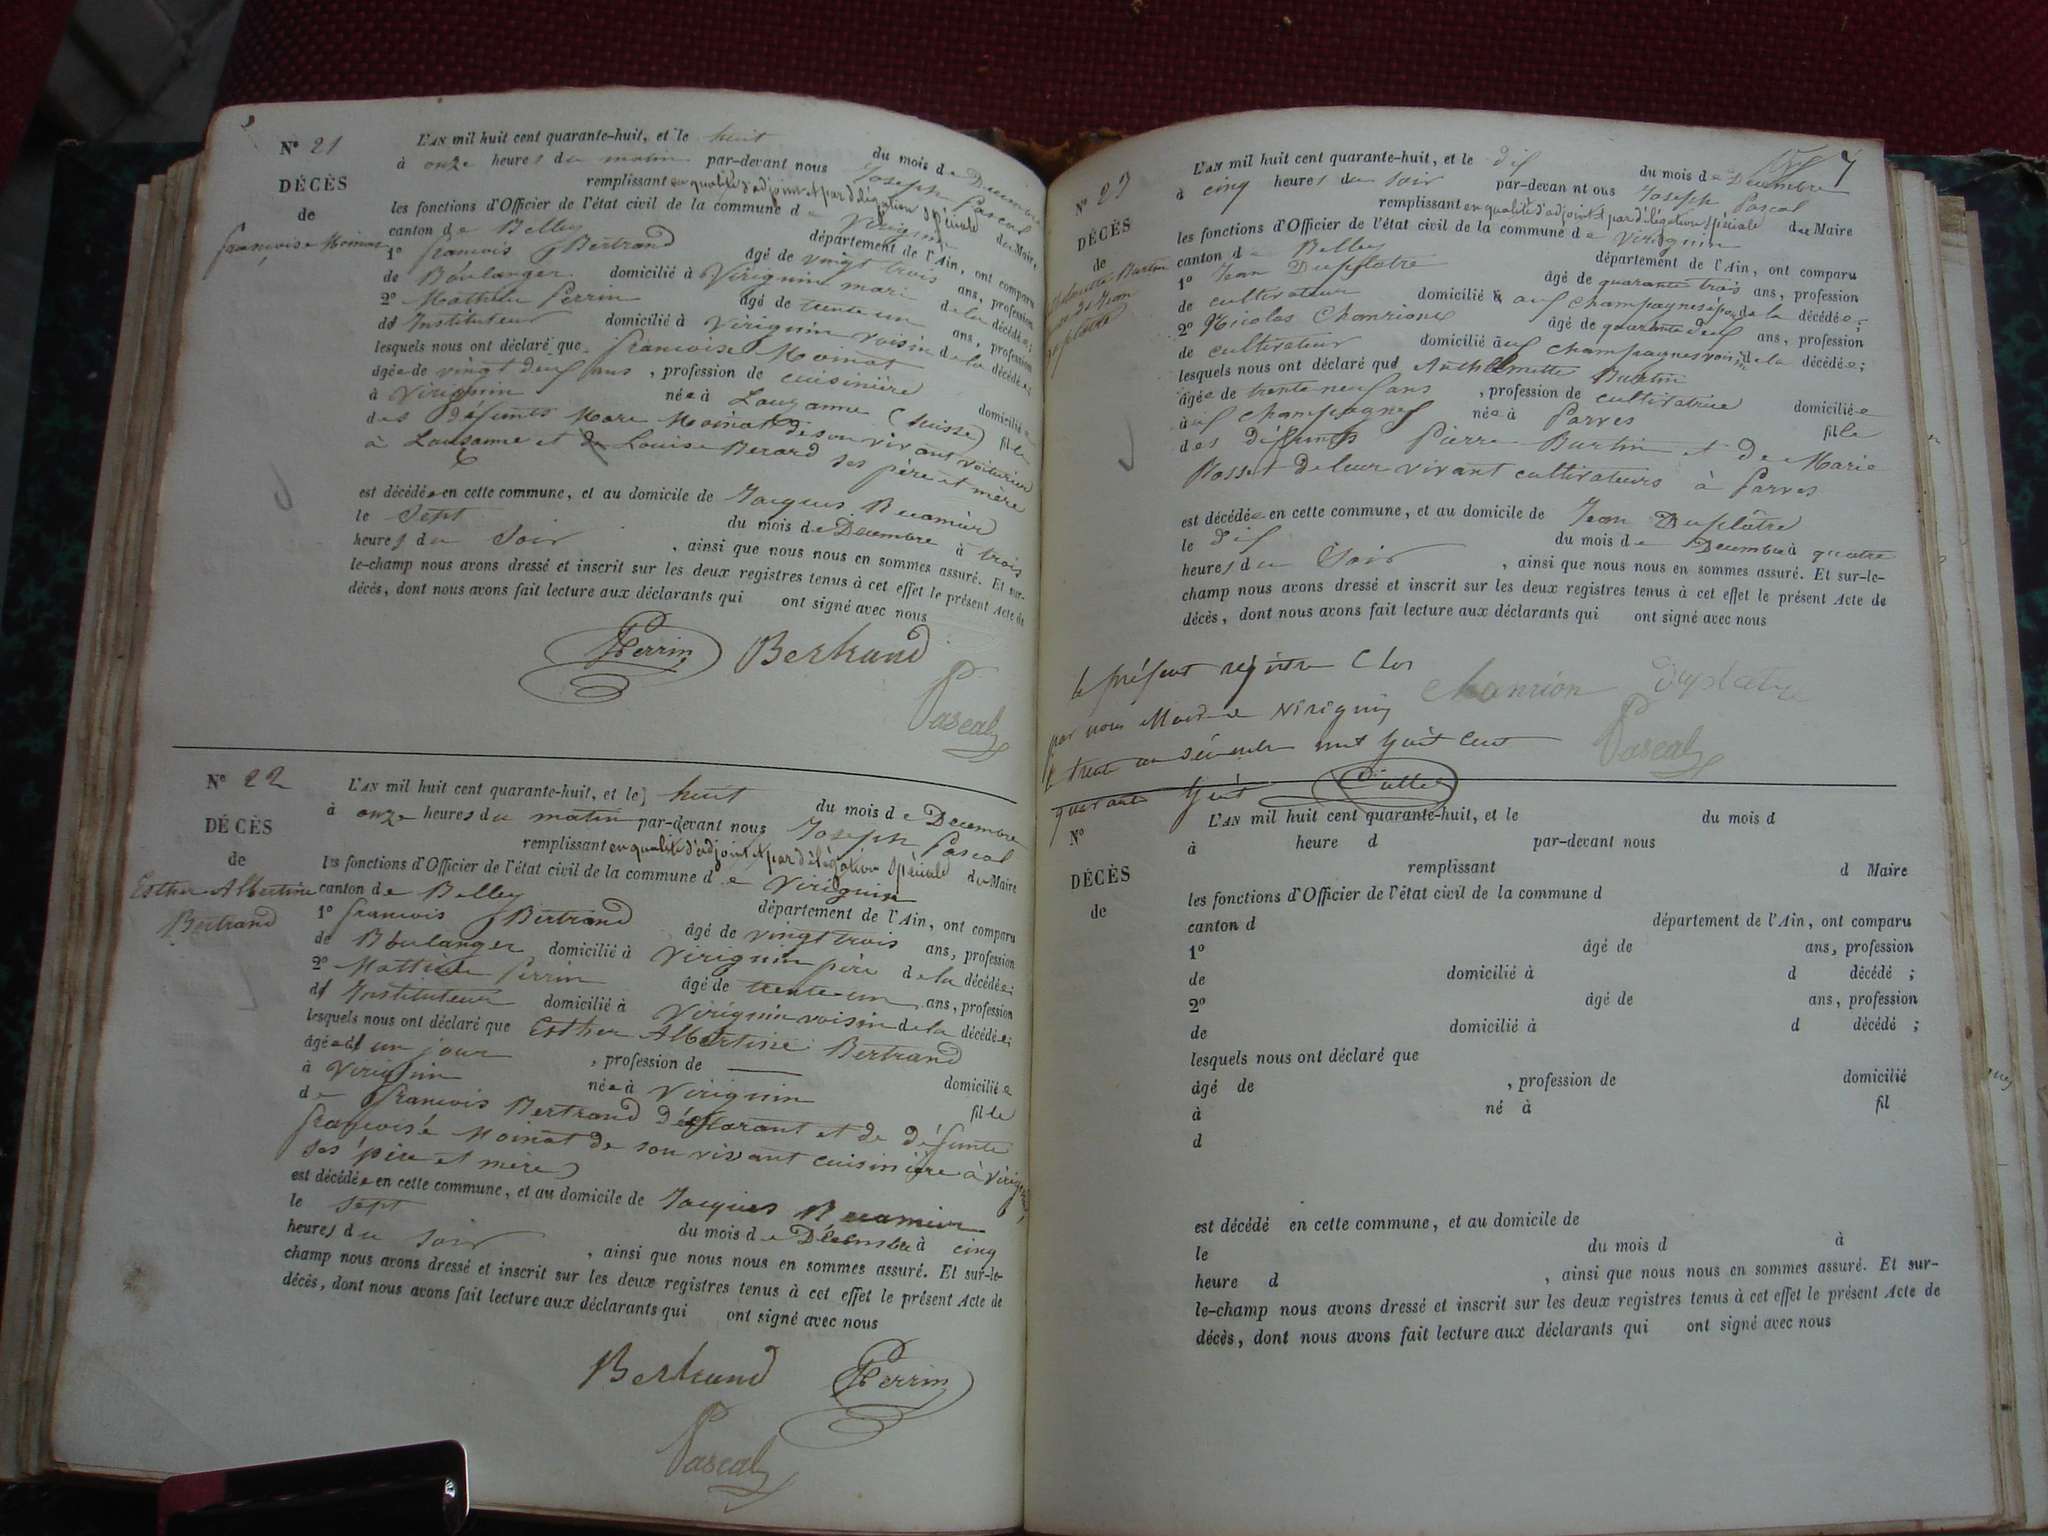 N° 21
DÉCÈS
de
françoise Moinat
L'AN mil huit cent quarante-huit, et le huit du mois de Decembre
à onze heures du matin par-devant nous Joseph Pascal
remplissant en qualité d'adjoint et par délégation Spéciale du Maire,
les fonctions d'Officier de l'état civil de la commune de Virignin
canton de Belley département de l'Ain, ont comparu
1° francois Bertrand âgé de vingt trois ans, profession
de Boulanger domicilié à Virignin mari de la décédée;
2° Mathieu Perrin âgé de trente un ans, profession
d' Instituteur domicilié à Virignin voisin de la décédée;
lesquels nous ont déclaré que francoise Moinat
âgée de vingt deux ans, profession de cuisinière domiciliée
à Virignin née à Lauzanne (Suisse) fille
des défunts Marc Moinat de son vivant voiturier
à Lausanne et de Louise Berard ses père et mère
est décédée en cette commune, et au domicile de Jacques Recamier
le Sept du mois de Decembre à trois
heures du Soir, ainsi que nous nous en sommes assuré. Et sur-
le-champ nous avons dressé et inscrit sur les deux registres tenus à cet effet le présent Acte de
décès, dont nous avons fait lecture aux déclarants qui ont signé avec nous
Perrin Bertrand
Pascal
N° 22
DÉCÈS
de
Esther Albertine
Bertrand
L'AN mil huit cent quarante-huit, et le huit du mois de Decembre
à onze heures du matin par-devant nous Joseph Pascal
remplissant en qualité d'adjoint et par délégation Spéciale du Maire
les fonctions d'Officier de l'état civil de la commune de Virignin
canton de Belley département de l'Ain, ont comparu
1° francois Bertrand âgé de vingt trois ans, profession
de Boulanger domicilié à Virignin père de la décédée;
2° Mathieu Perrin âgé de trente un ans, profession
d' Instituteur domicilié à Virignin voisin de la décédée;
lesquels nous ont déclaré que Esther Albertine Bertrand
âgée d' un jour, profession de — domiciliée
à Virignin née à Virignin fille
de francois Bertrand déclarant et de défunte
françoise Moinat de son vivant cuisiniere à Virignin,
ses père et mère
est décédée en cette commune, et au domicile de Jacques Recamier
le sept du mois de Décembre à cinq
heures du soir, ainsi que nous nous en sommes assuré. Et sur-le-
champ nous avons dressé et inscrit sur les deux registres tenus à cet effet le présent Acte de
décès, dont nous avons fait lecture aux déclarants qui ont signé avec nous
Bertrand Perrin
Pascal
7
N° 23
DÉCÈS
de
Burtin
Jean
Duplatre
L'AN mil huit cent quarante-huit, et le dix du mois de Decembre
à cinq heures du soir par-devant nous Joseph Pascal
remplissant en qualité d'adjoint et par délégation Spéciale du Maire
les fonctions d'Officier de l'état civil de la commune de Virignin
canton de Belley département de l'Ain, ont comparu
1° Jean Duplatre âgé de quarante trois ans, profession
de cultivateur domicilié à aux Champagnes époux de la décédée;
2° Nicolas Chanrion âgé de quarante deux ans, profession
de cultivateur domicilié aux champagnes voisin de la décédée;
lesquels nous ont déclaré que Anthelmette Burtin
âgée de trente neuf ans, profession de cultivatrice domiciliée
aux champagnes née à Parves fille
des défunts Pierre Burtin et de Marie
Rosset de leur vivant cultivateurs à Parves
est décédée en cette commune, et au domicile de Jean Duplâtre
le dix du mois de Decembre à quatre
heures du Soir, ainsi que nous nous en sommes assuré. Et sur-le-
champ nous avons dressé et inscrit sur les deux registres tenus à cet effet le présent Acte de
décès, dont nous avons fait lecture aux déclarants qui ont signé avec nous
Chanrion Duplatre
Pascal
le présent régistre Clos
par nous Maire de Virignin
le trente un décembre mil huit Cent
quarante huit
N°
DÉCÈS
de
L'AN mil huit cent quarante-huit, et le du mois d
à heure d par-devant nous
remplissant d Maire
les fonctions d'Officier de l'état civil de la commune d
canton d département de l'Ain, ont comparu
1° âgé de ans, profession
de domicilié à d décédé ;
2° âgé de ans, profession
de domicilié à d décédé ;
lesquels nous ont déclaré que
âgé de , profession de domicilié
à né à fil
d
est décédé en cette commune, et au domicile de
le du mois d à
heure d , ainsi que nous nous en sommes assuré. Et sur-
le-champ nous avons dressé et inscrit sur les deux registres tenus à cet effet le présent Acte de
décès, dont nous avons fait lecture aux déclarants qui ont signé avec nous